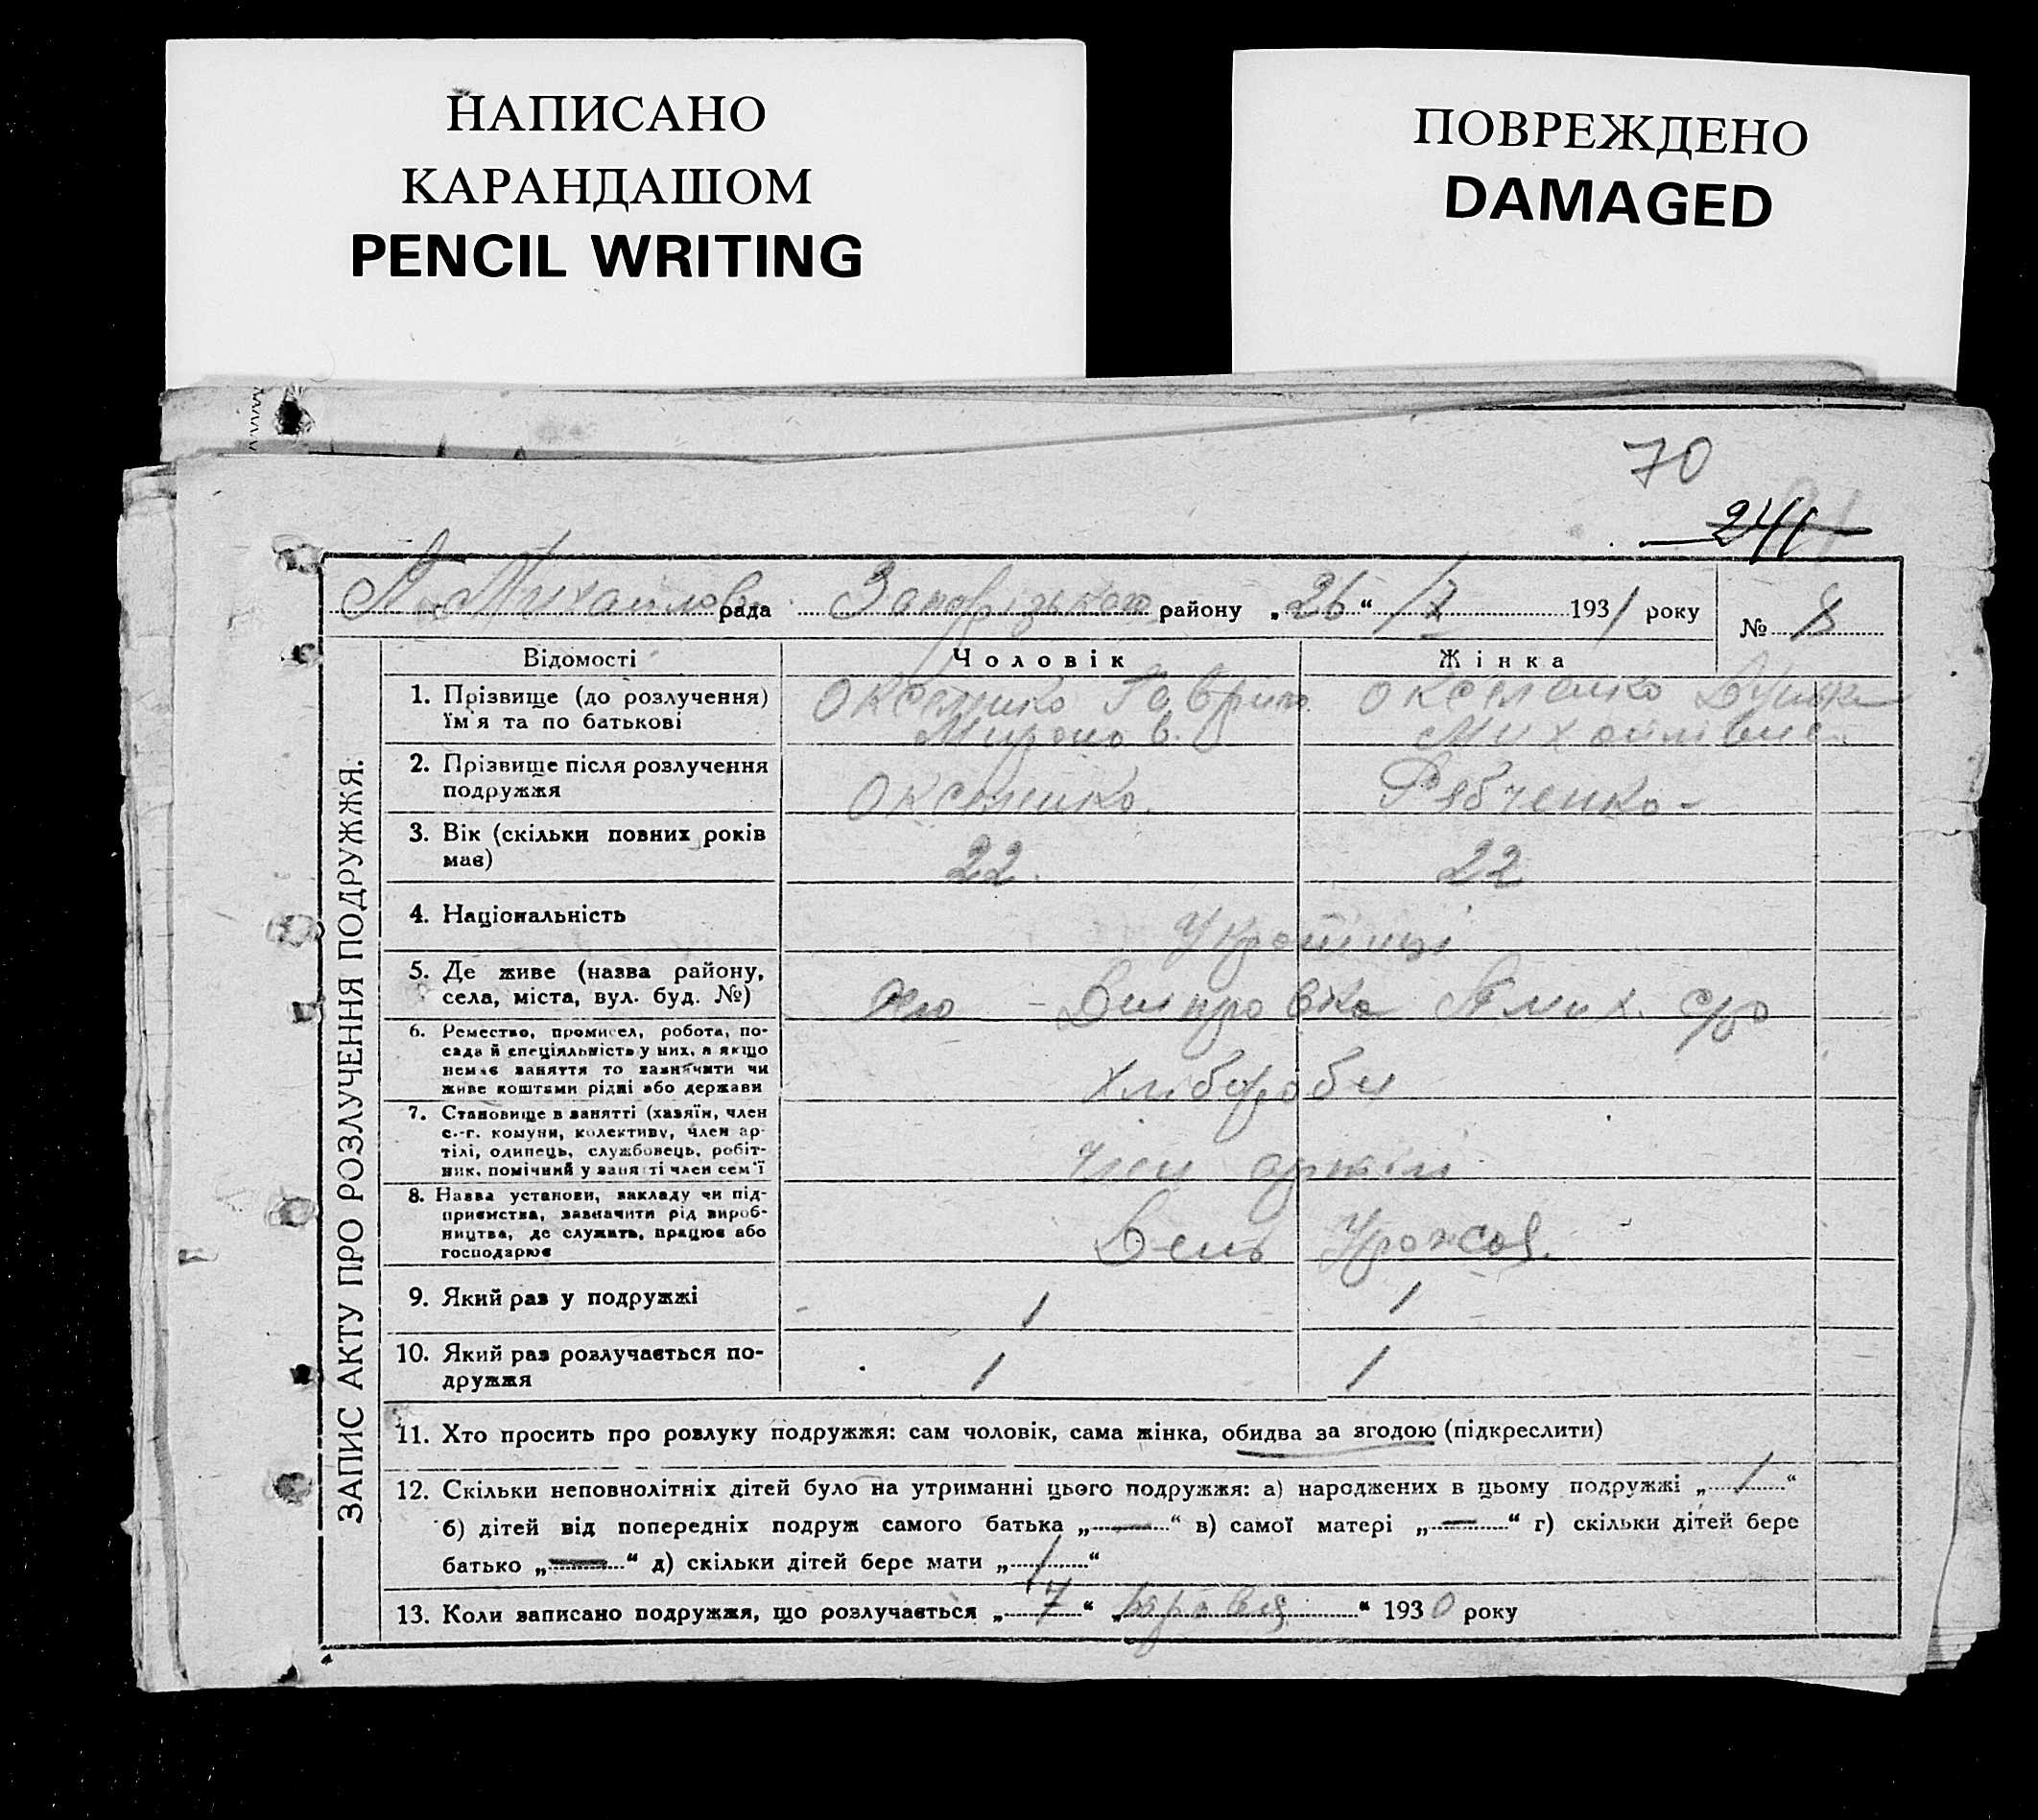 НАПИСАНО
КАРАНДАШОМ
PENCIL WRITING
ПОВРЕЖДЕНО
DAMAGED
70
241
рада Запорізького району „26“ 1931 року
№ 8
ЗАПИС АКТУ ПРО РОЗЛУЧЕННЯ ПОДРУЖЖЯ.
Відомості Чоловік Жінка
1. Прізвище (до розлучення) Оксенико Гаврило Оксенико
їм'я та по батькові Миронов. Михайлівна
2. Прізвище після розлучення
подружжя Оксенико. Рябченко-
3. Вік (скільки повних років
має) 22. 22
4. Національність Українці
5. Де живе (назва району,
села, міста, вул. буд. №) село - Дніпровка с/р
6. Ремество, промисел, робота, по-
сада й спеціяльність у них, а якщо
немає заняття то зазначити чи
живе коштами рідні або держави хлібороби
7. Становище в занятті (хазяїн, член
с.-г. комуни, колективу, член ар-
тілі, одинець, службовець, робіт-
ник, помічний у занятті член сем'ї член артілі
8. Назва установи, закладу чи під-
приємства, зазначити рід вироб-
ництва, де служить, працює або
господарює День Урожая.
9. Який раз у подружжі 1 1
10. Який раз розлучається по-
дружжя 1 1
11. Хто просить про розлуку подружжя: сам чоловік, сама жінка, обидва за згодою (підкреслити)
12. Скільки неповнолітніх дітей було на утриманні цього подружжя: а) народжених в цьому подружжі „1“
б) дітей від попередніх подруж самого батька „—“ в) самої матері „—“ г) скільки дітей бере
батько „—“ д) скільки дітей бере мати „1“
13. Коли записано подружжя, що розлучається „7“ „ “ 1930 року